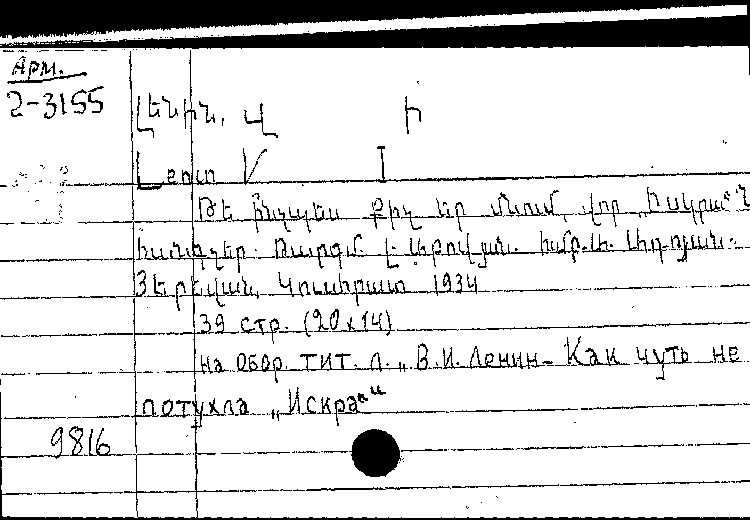 Арм.
2-3155
Լենին, Վ Ի
Lenin V I
Թե ինչպես քիչ եր մնում, վոր „Իսկրա“ն
հանգչեր. Թարգմ.
Յերեվան, Կուսհրատ 1934
39 стр. (20x14)
на обор. тит. л. „В.И. Ленин - Как чуть не
потухла „Искра““
9816